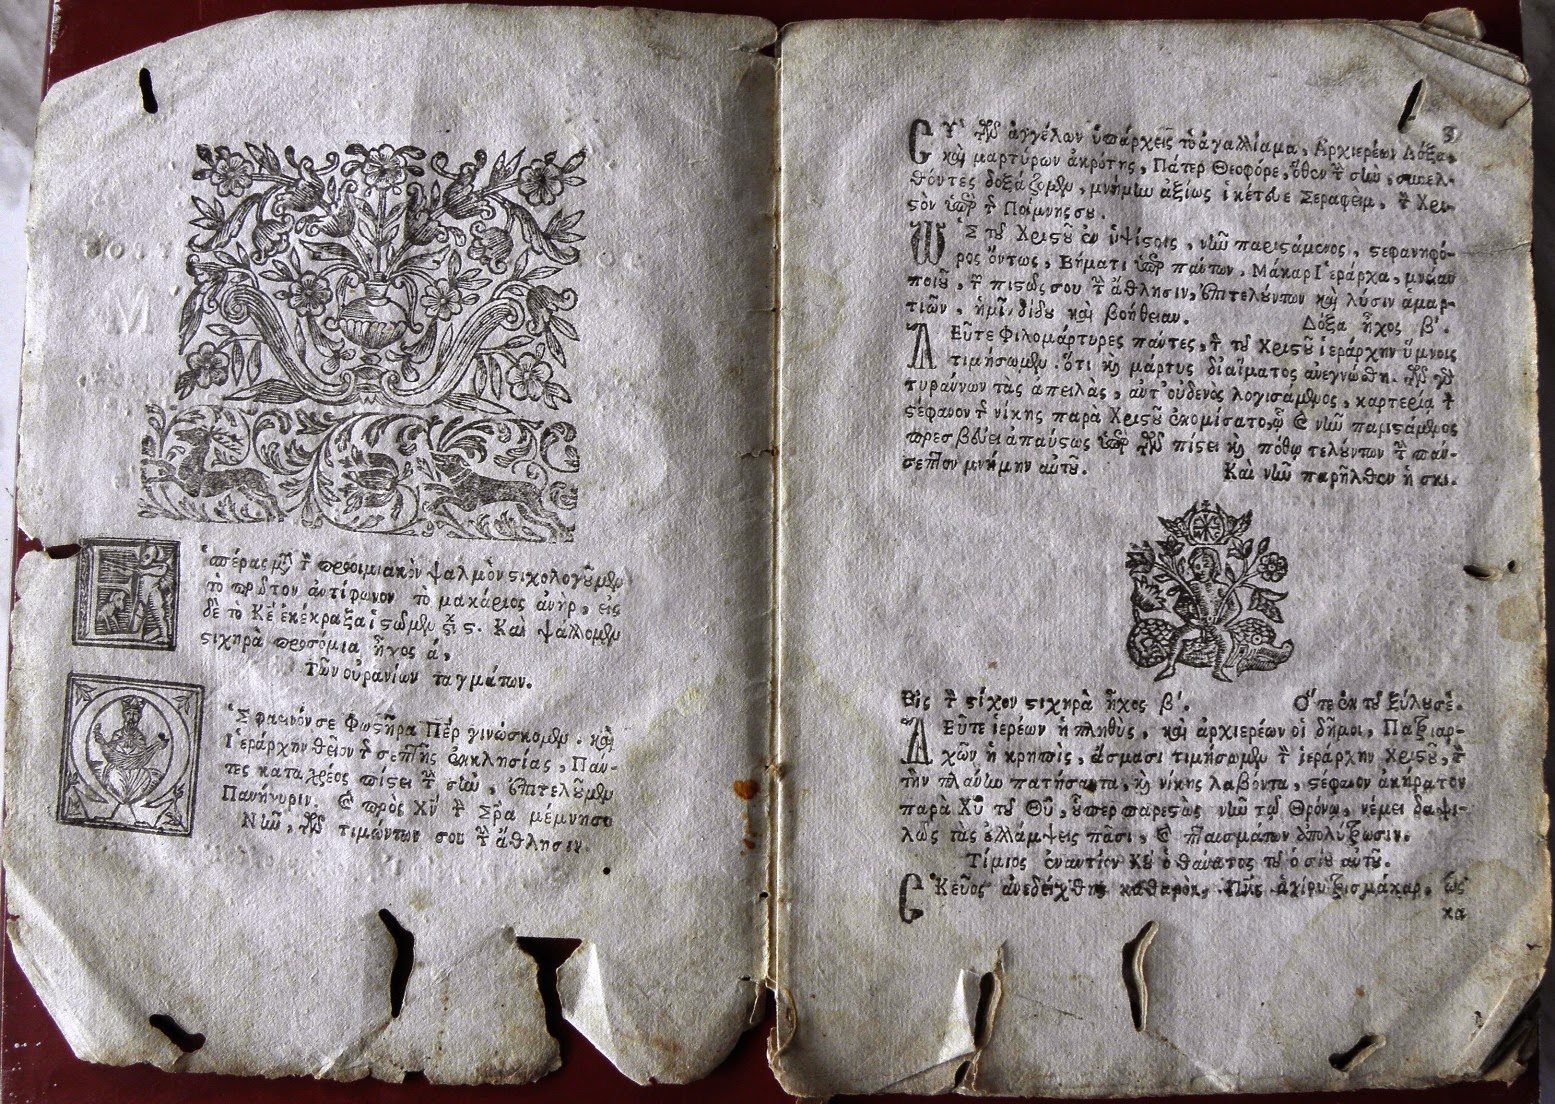 Ἑσπέρας μετὰ τὸν προοιμιακὸν ψαλμὸν στιχολογοῦμεν
τὸ πρῶτον ἀντίφωνον τὸ μακάριος ἀνὴρ, εἰς
δὲ τὸ Κέ ἐκέκραξα ἱστῶμεν. Καὶ ψάλλομεν
στιχηρὰ προσόμια ἦχος ά,
Τῶν οὐρανίων ταγμάτων.
Ὡς φαεινόν σε Φωστῆρα Πέρ γινώσκομεν. καὶ
Ἱεράρχην θεῖον τῆς σεπτῆς ἐκκλησίας, Πάν-
τες καταχρέος πίστει τὴν σὴν, ἐπιτελοῦμεν
Πανήγυριν. πρὸς Χν μέμνησο
Νῦν, τῶν τιμώντων σου τὴν ἄθλησιν.
3
Σὺ τῶν ἀγγέλων ὑπάρχεις τὸ ἀγαλλίαμα, Ἀρχιερέων Δόξα,
καὶ μαρτύρων ἀκρότης, Πάτερ Θεοφόρε, ὅθεν τὴν σὴν, συνελ-
θόντες δοξάζομεν, μνήμην ἀξίως ἱκέτευε Σεραφεὶμ, τὸν Χρι-
στὸν ὑπὲρ τῆς Ποίμνης σου.
Ὡς τοῦ Χριστοῦ ἐν ὑψίστοις, νῦν παριστάμενος, στεφανηφό-
ρος ὄντως, Βήματι ὑπὲρ πάντων, Μάκαρ Ἱεράρχα, μνείαν
ποιοῦ, τῶν πιστῶς σου τὴν ἄθλησιν, ἐπιτελούντων καὶ λύσιν ἁμαρ-
τιῶν, ἡμῖν δίδου καὶ βοήθειαν. Δόξα ἦχος β'.
Δεῦτε Φιλομάρτυρες πάντες, τὸν τοῦ Χριστοῦ ἱεράρχην ὕμνοις
τιμήσωμεν. ὅτι καὶ μάρτυς διαἵματος ἀνεγνώσθη. τῶν
τυράννων τὰς ἀπειλὰς, ἀντ' οὐδενὸς λογισάμενος, καρτερίᾳ τὸν
στέφανον τῆς νίκης παρὰ Χριστοῦ ἐκομίσατο, ᾧ καὶ νῦν παριστάμενος
πρεσβεύει ἀπαύστως ὑπὲρ τῶν πίστει καὶ πόθῳ τελούντων τὴν πάν-
σεπτον μνήμην αὐτοῦ. Καὶ νῦν παρῆλθεν ἡ σκι.
Εἰς τὸν στίχον στιχηρὰ ἦχος β'. Ὅτε ἐκ τοῦ ξύλου σὲ.
Δεῦτε ἱερέων ἡ πληθὺς, καὶ ἀρχιερέων οἱ δῆμοι, Πατριαρ-
χῶν ἡ κρηπὶς, ἄσμασι τιμήσωμεν τὸν ἱεράρχην Χριστοῦ, τὸν
τὴν πλάνην πατήσαντα, καὶ νίκης λαβόντα, στέφανον ἀκήρατον
παρὰ Χῦ τοῦ Θῦ, ὅσπερ παρεστὼς νῦν τῷ Θρόνῳ, νέμει δαψι-
λῶς τὰς ἐλλάμψεις πᾶσι, καὶ πταισμάτων ἀπολύτρωσιν.
Τίμιος ἐναντίον Κῦ ὁ θάνατος τοῦ ὁσίου αὐτοῦ.
Σκεῦος ἀνεδείχθης καθαρὸν, μάκαρ, ὡς
κα